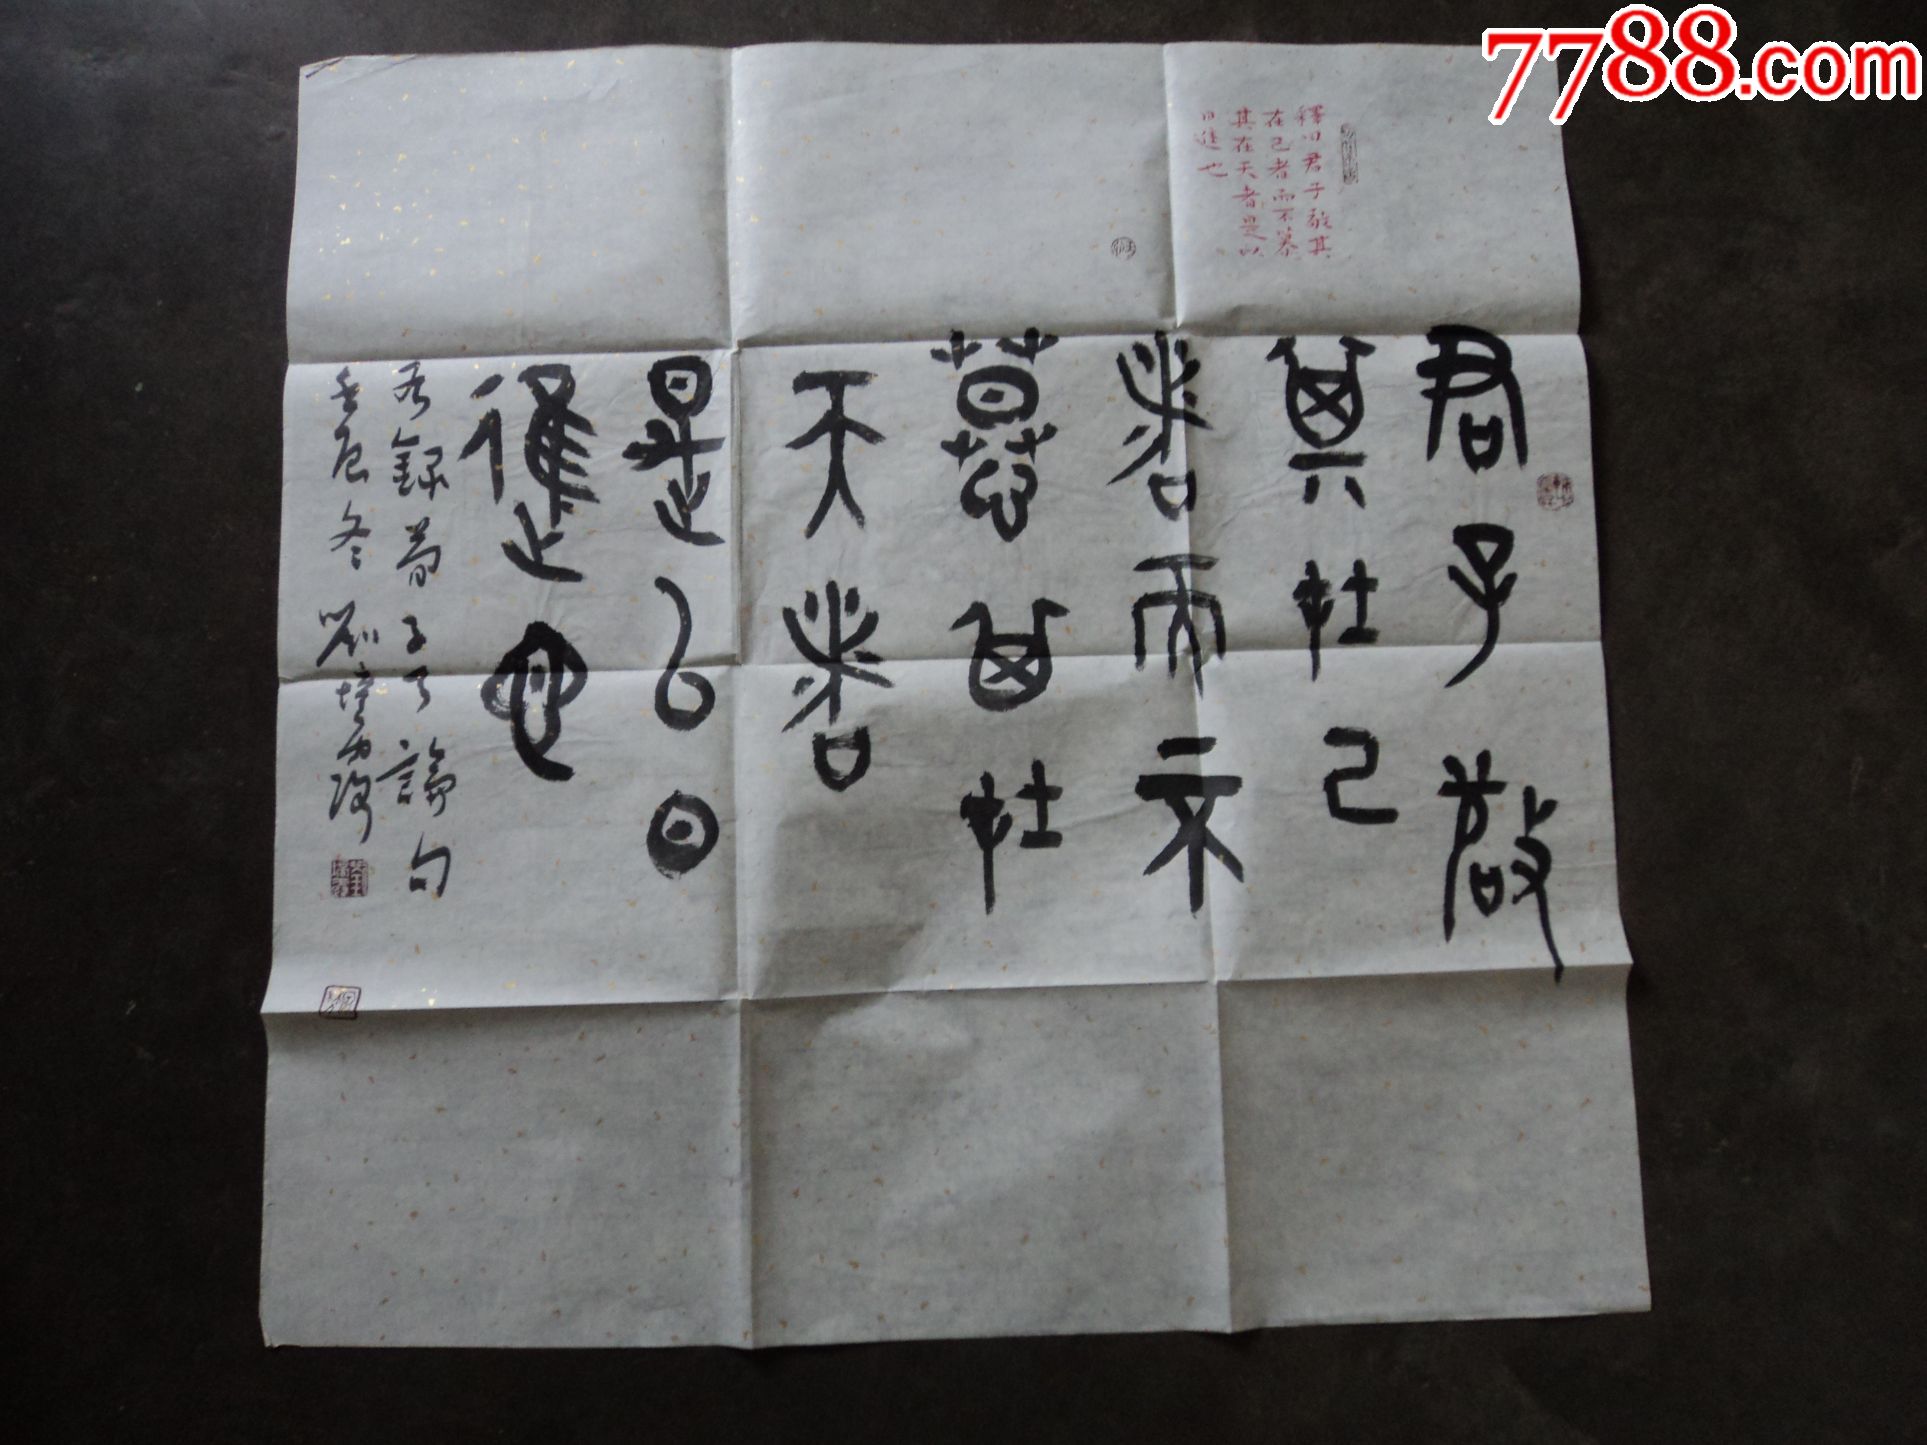 7788.com
釋曰君子敬其
在己者而不慕
其在天者是以
日進也
君子敬
其在己
者而不
慕其在
天者
是以日
進也
右錄荀子天論句
壬辰冬劉